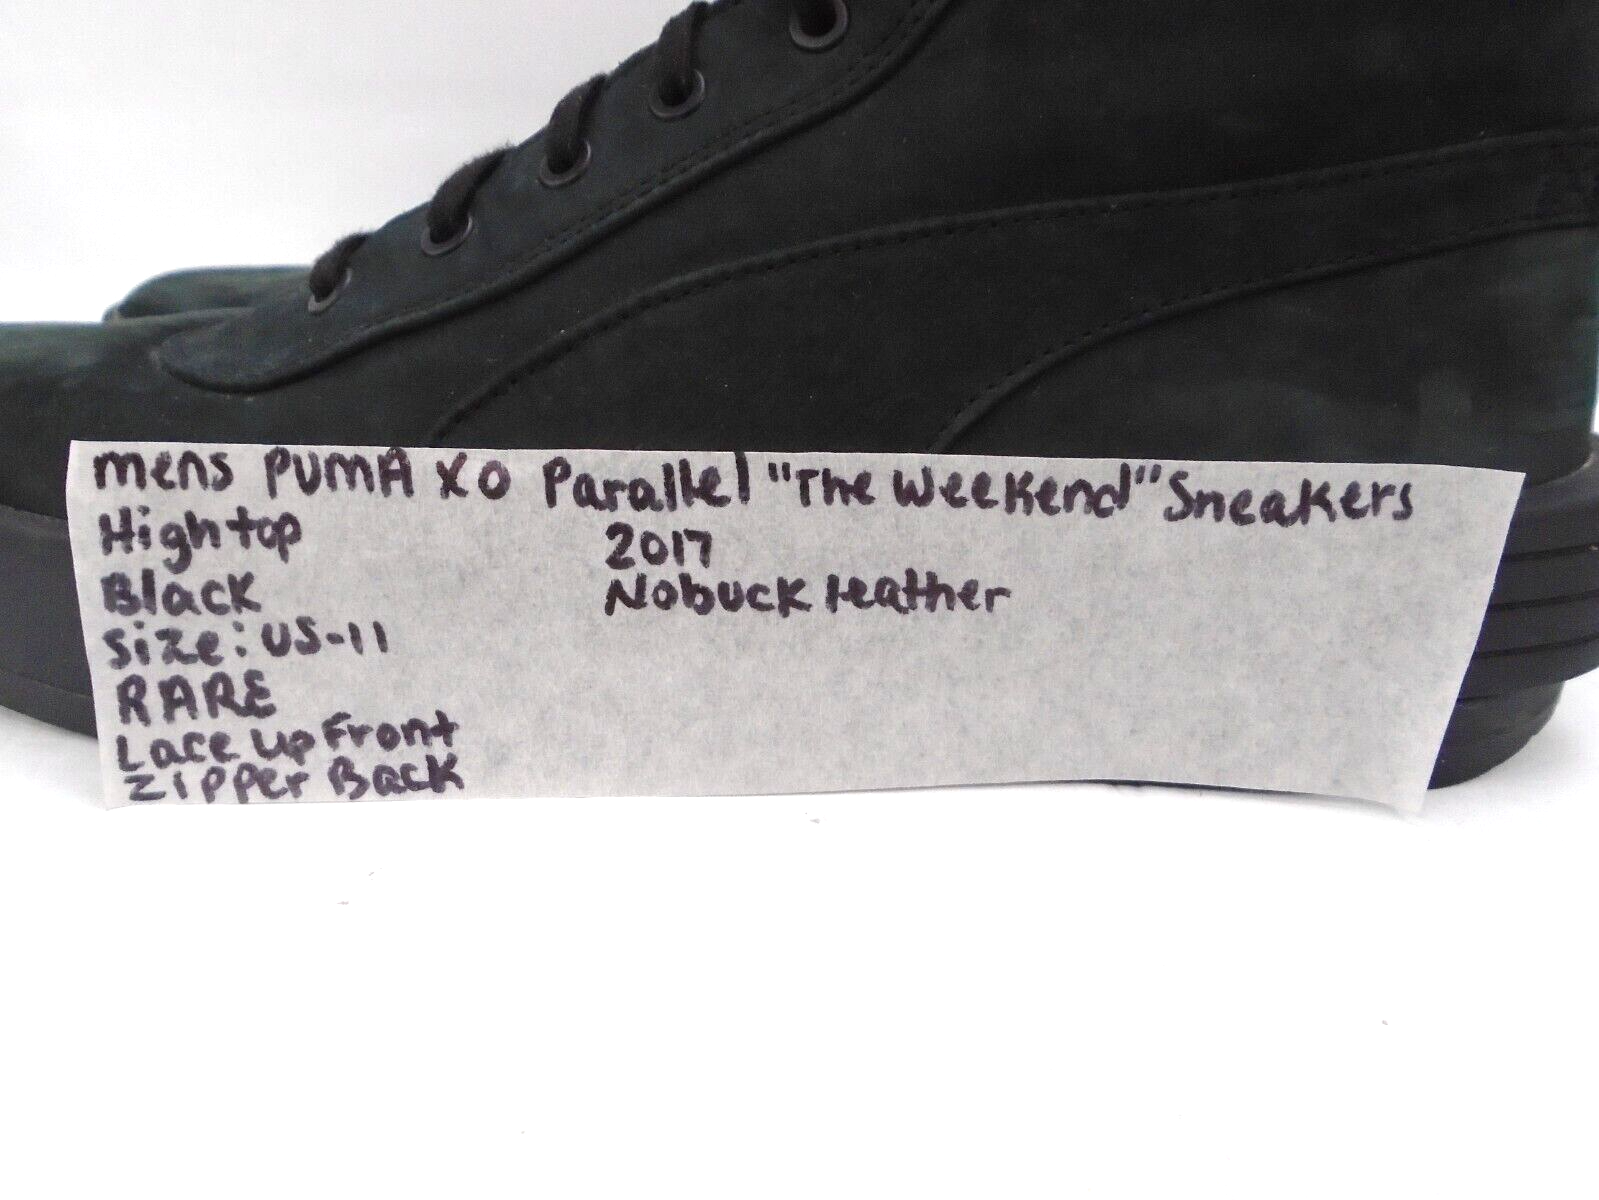 mens PUMA XO Parallel "The Weekend" Sneakers
High top
2017
Black
Nobuck leather
Size: US-11
RARE
Lace up Front
Zipper Back